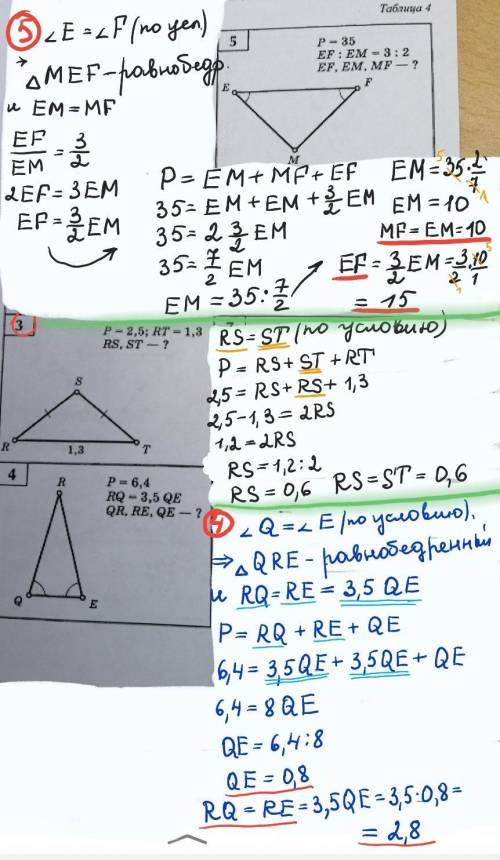 Таблица 4
5
P = 35
EF : EM = 3 : 2
EF, EM, MF — ?
E
F
M
5 ∠E = ∠F (по усл)
→ △MEF – равнобедр.
и EM = MF
EF/EM = 3/2
2EF = 3EM
EF = 3/2 EM
P = EM + MF + EF
35 = EM + EM + 3/2 EM
35 = 2 3/2 EM
35 = 7/2 EM
EM = 35 : 7/2
EM = 35 · 2/7
5
1
EM = 10
MF = EM = 10
EF = 3/2 EM = 3·10/2·1
5
1
= 15
3
P = 2,5; RT = 1,3
RS, ST — ?
S
R
1,3
T
RS = ST (по условию)
P = RS + ST + RT
2,5 = RS + RS + 1,3
2,5 – 1,3 = 2RS
1,2 = 2RS
RS = 1,2 : 2
RS = 0,6 RS = ST = 0,6
4
R
P = 6,4
RQ = 3,5 QE
QR, RE, QE — ?
Q
E
4 ∠Q = ∠E (по условию),
⇒ △QRE – равнобедренный
и RQ = RE = 3,5 QE
P = RQ + RE + QE
6,4 = 3,5QE + 3,5QE + QE
6,4 = 8QE
QE = 6,4 : 8
QE = 0,8
RQ = RE = 3,5QE = 3,5·0,8 =
= 2,8